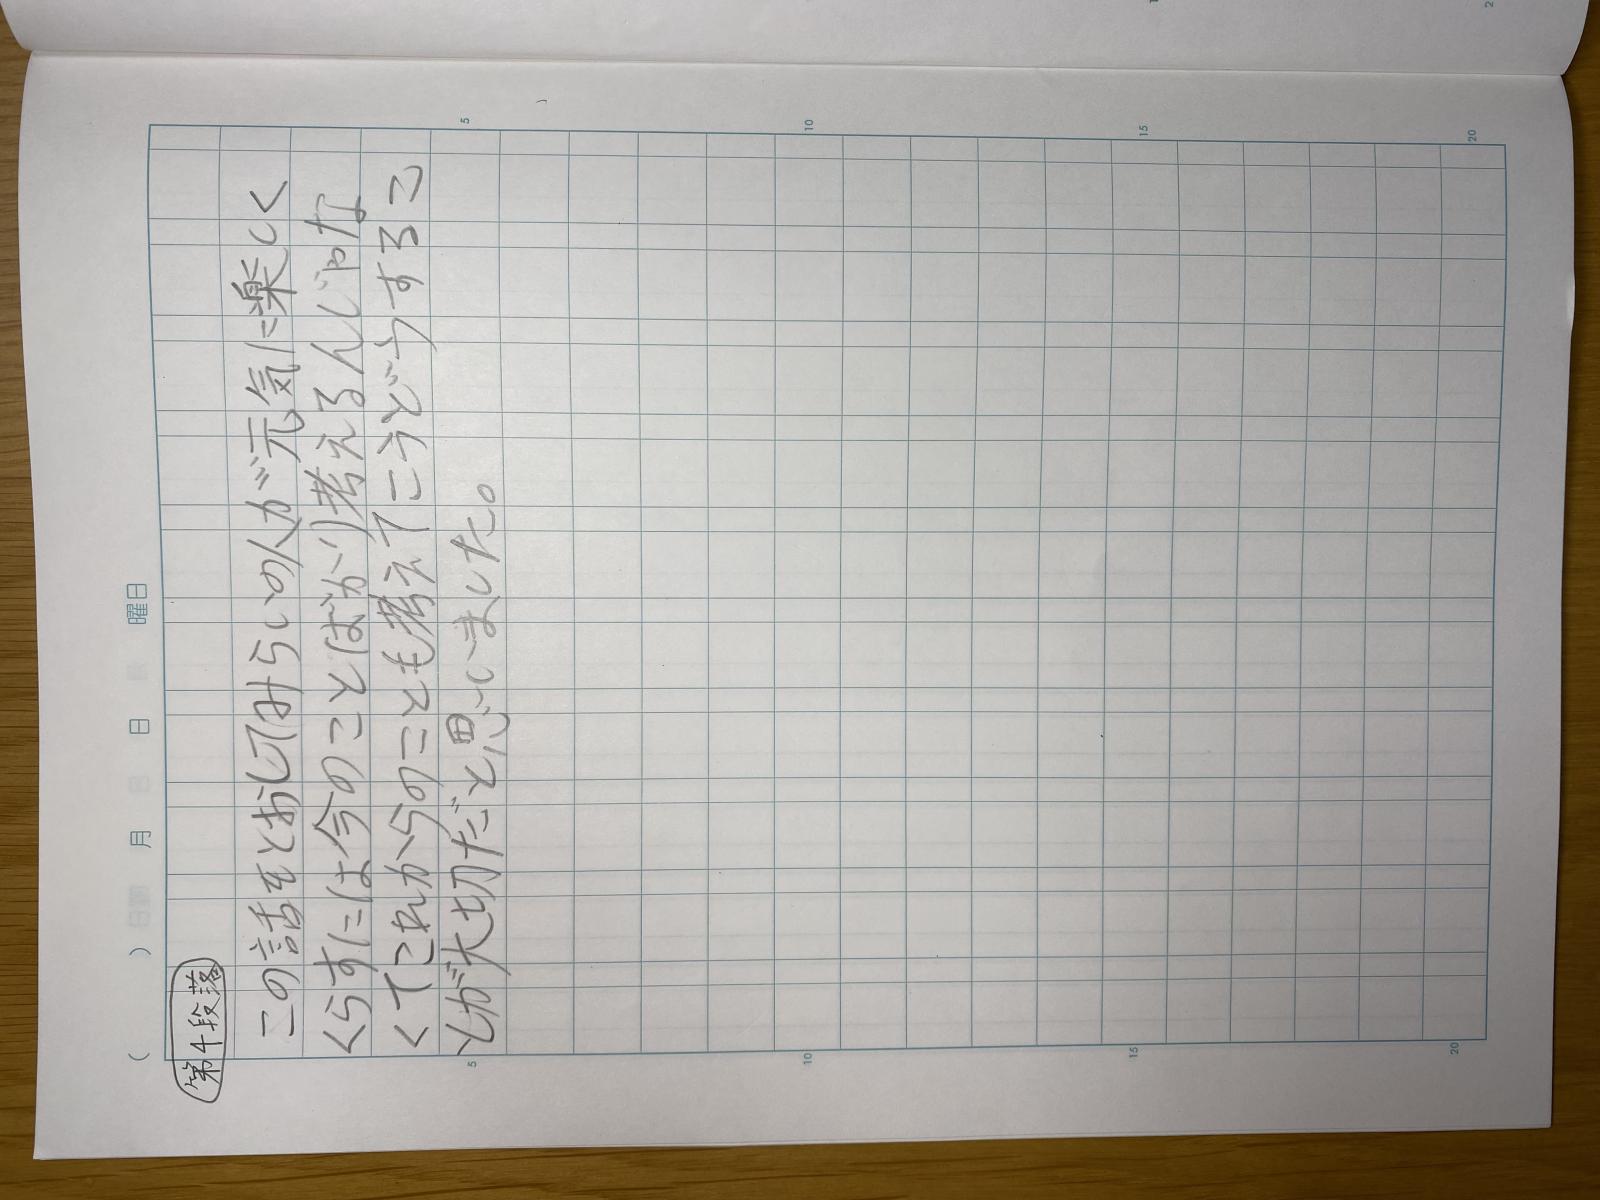 ( ) 月 日 曜日
第4段落
この話をとおしてみらいの人が元気に楽しく
くらすには今のことばかり考えるんじゃな
くてこれからのことも考えてこうどうするこ
とが大切だと思いました。
5 10 15 20
5 10 15 20